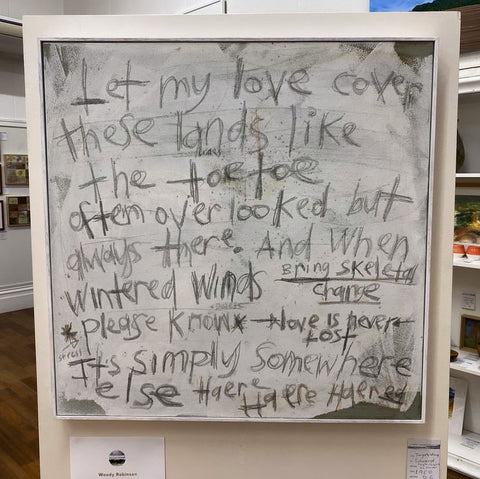 Let my love cover
these lands like
the toetoe
often overlooked but
always there. And when
wintered winds Bring skeletal
change
please know love is never
lost
Its simply somewhere
else Haere Haere Haerea
Woody Robinson